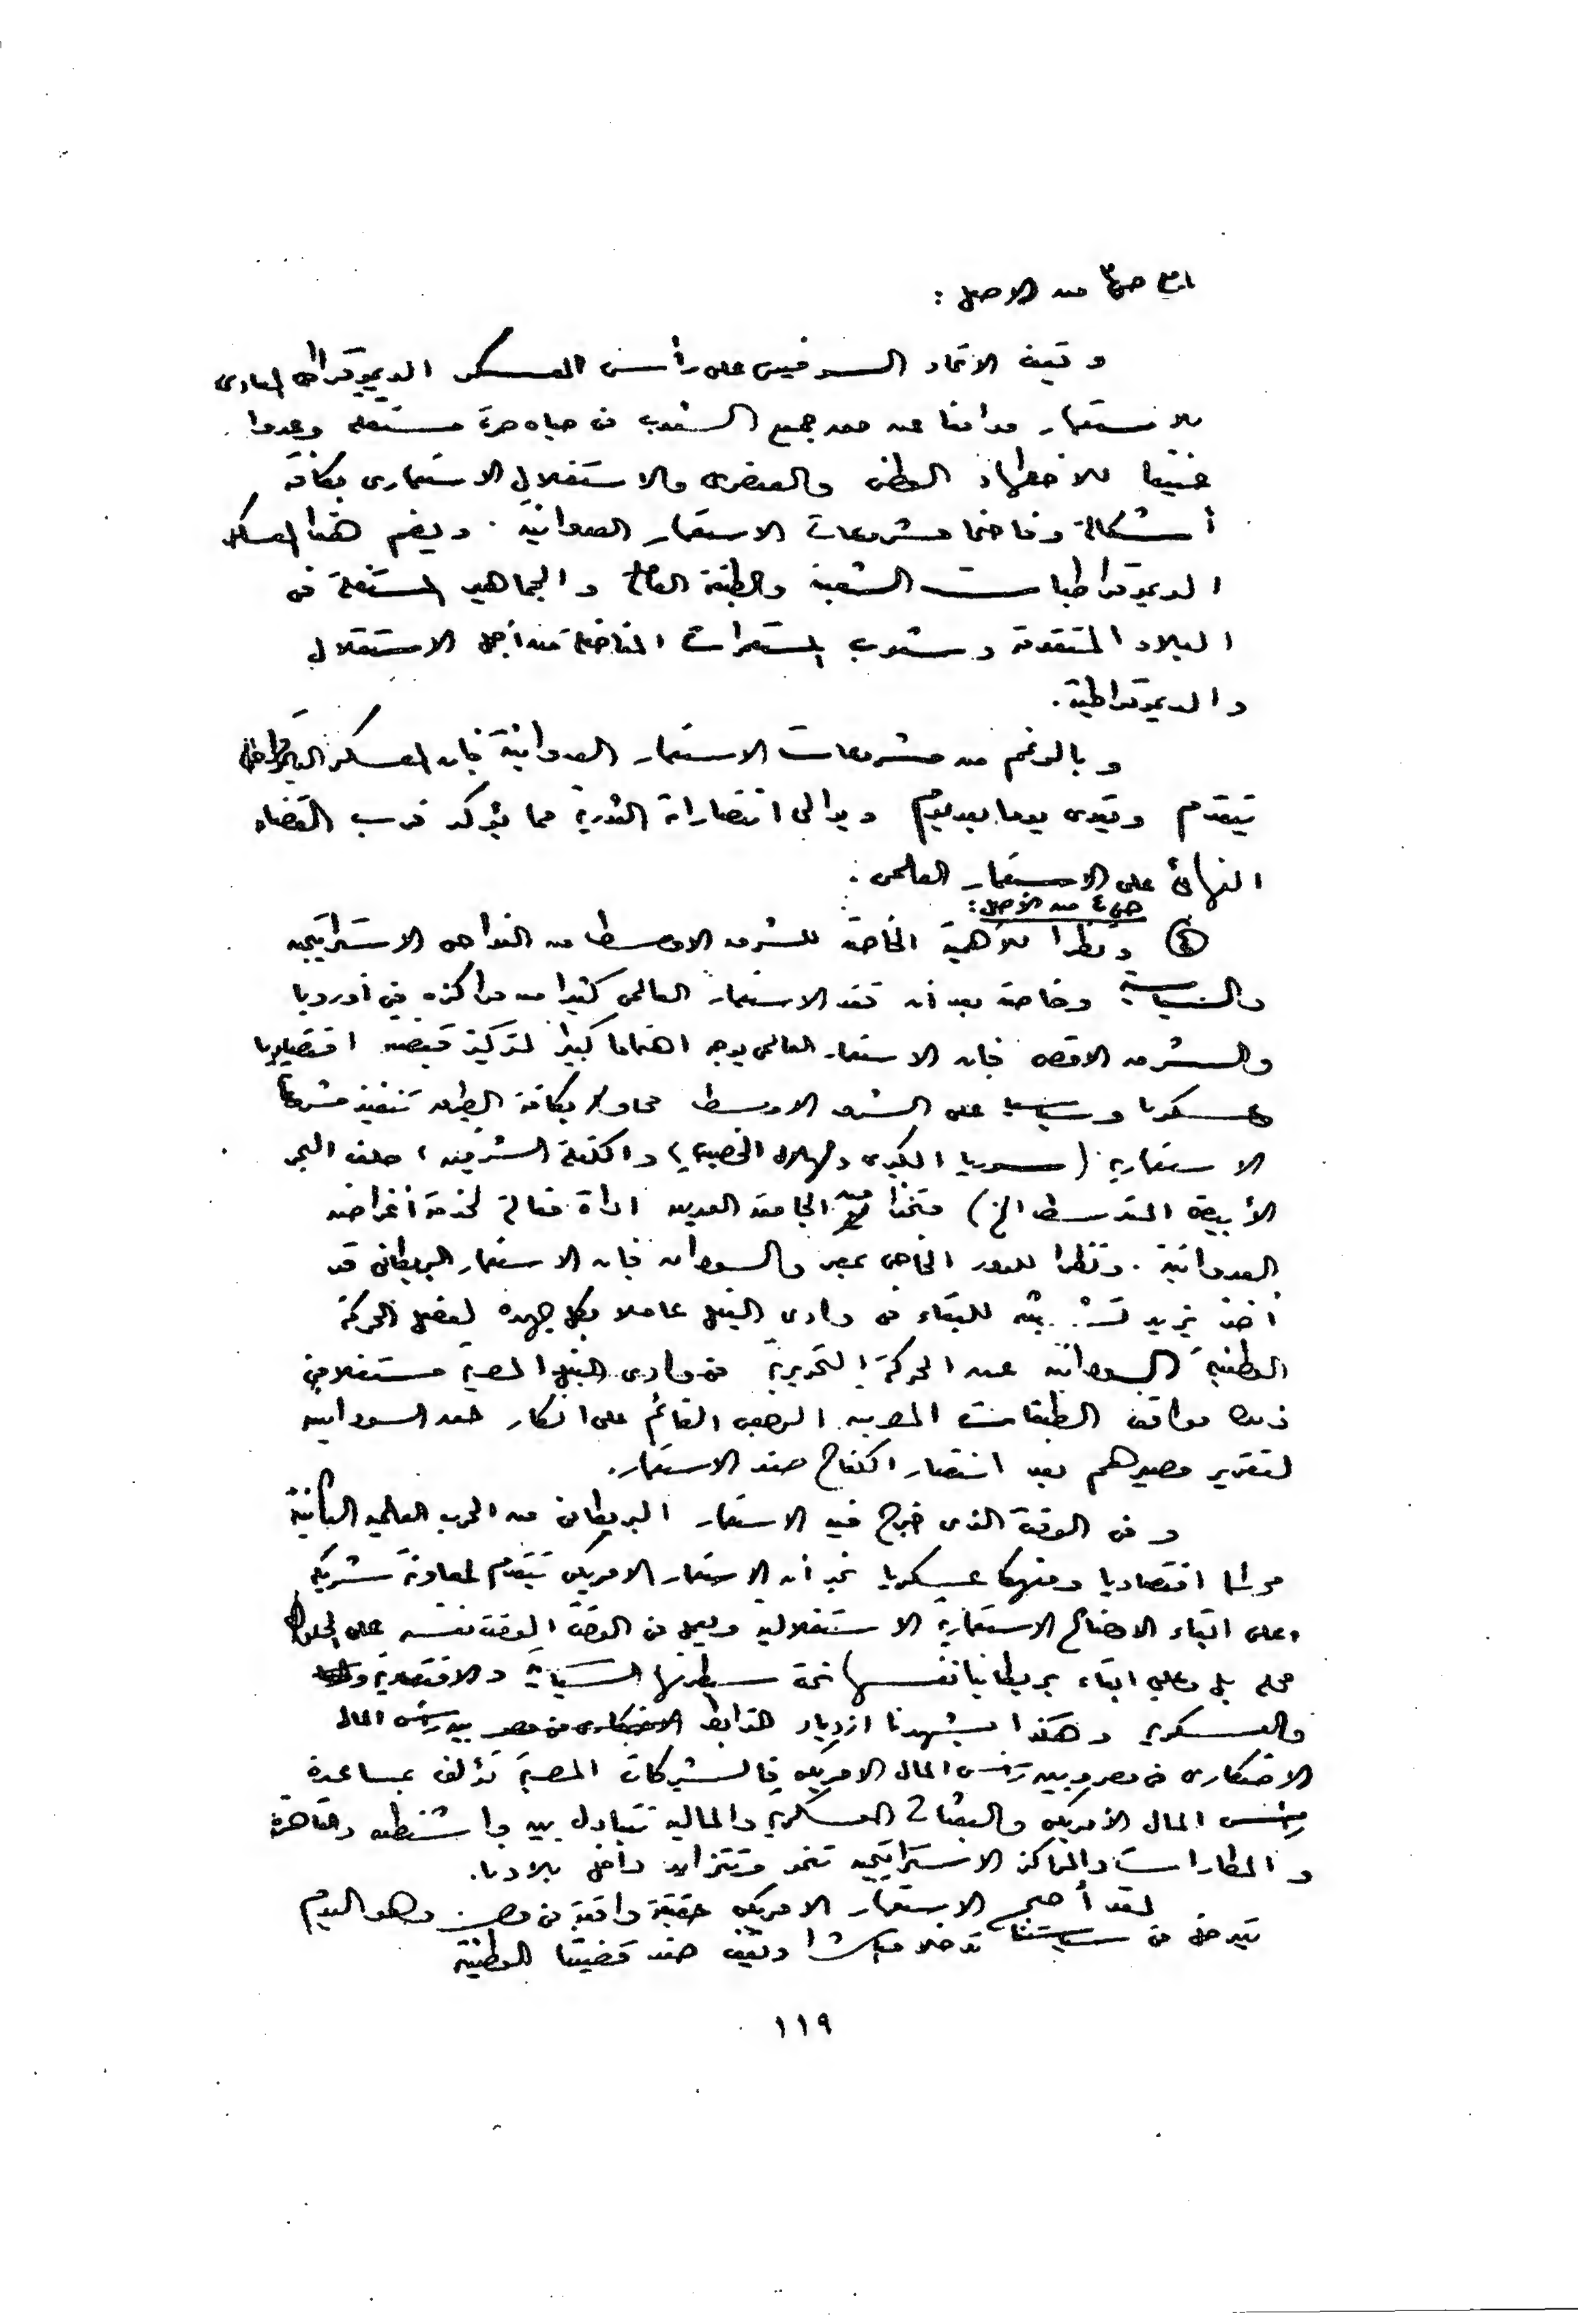 ص٣ من الاصل :
و تقف الاتحاد السوفيتى على رأس المعسكر الديموقراطى المعادى
للاستعمار مدافعا عن حق جميع الشعوب فى حياه حرة مستقلة وعدوا
عنيفا للاضطهاد الوطنى والعنصرى والاستغلال الاستعمارى بكافة
أشكاله وفاضحا مشروعات الاستعمار العدوانية . ويضم هذا المعسكر
الديموقراطيات الشعبية والطبقة العاملة والجماهير المستغلة فى
البلاد المتقدمة وشعوب المستعمرات المناضلة من أجل الاستقلال
والديموقراطية .
وبالرغم من مشروعات الاستعمار العدوانية فان المعسكر الديموقراطى
يتقدم ويقوى يوما بعد يوم ويوالى انتصاراته الثورية مما يؤكد قرب القضاء
النهائى على الاستعمار العالمى .
ص ٤ من الأصل :
④ ونظرا للأهمية الخاصة للشرق الاوسط من النواحى الاستراتيجيه
والسياسية وخاصة بعد أن فقد الاستعمار العالمى كثيرا من مراكزه فى أوروبا
والشرق الاقصى فان الاستعمار العالمى يوجه اهتماما كبيرا لتركيز قبضته اقتصاديا
وعسكريا وسياسيا على الشرق الاوسط محاولا بكافة الطرق تنفيذ مشروعاته
الاستعمارية (سوريا الكبرى والهلال الخصيب، والكتلة الشرقية، حلف البحر
الأبيض المتوسط الخ) متخذا من الجامعة العربيه اداة فعالة لخدمة أغراضه
العدوانية . ونظرا للدور الخاص بمصر والسودان فان الاستعمار البريطانى قد
أخذ يزيد تشبثه للبقاء فى وادى النيل عاملا بكل جهده لفصل الحركة
الوطنية السودانيه عن الحركة التحريرية فى وادى النيل المصرى مستغلا فى
ذلك مواقف الطبقات المصريه الرجعى القائم على انكار حق السودانيين
لتقرير مصيرهم بعد انتصار الكفاح ضد الاستعمار.
و فى الوقت الذى خرج فيه الاستعمار البريطانى من الحرب العالمية الثانية
اقتصاديا ومنهكا عسكريا نجد أن الاستعمار الامريكى يتقدم لمعاونة شريكه
وعلى ابقاء الاوضاع الاستعمارية الاستغلاليه ويعمل فى الوقت الوقت نفسه على الحلول
محله بل وعلى ابقاء بريطانيا نفسها تحت سيطرتها السياسية والاقتصادية
والعسكرية وهكذا يشهدنا ازدياد الروابط بين رأس المال
الاحتكارى فى مصر وبين رأس المال الامريكى فالشركات المصرية تؤلف بمساعدة
رأس المال الأمريكى والبعثات العسكرية والماليه تتبادل بين واشنطن والقاهرة
و المطارات والمراكز الاستراتيجيه تنمو وتتزايد داخل بلادنا.
لقد أصبح الاستعمار الامريكى حقيقة واقعة فى مصر وهو اليوم
يتدخل فى سياستنا تدخلا مباشرا ويقف ضد قضيتنا الوطنية
١١٩